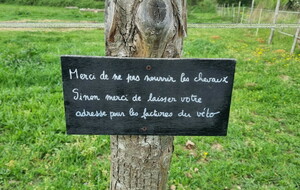 Merci de ne pas nourrir les chevaux
Sinon merci de laisser votre
adresse pour les factures du véto